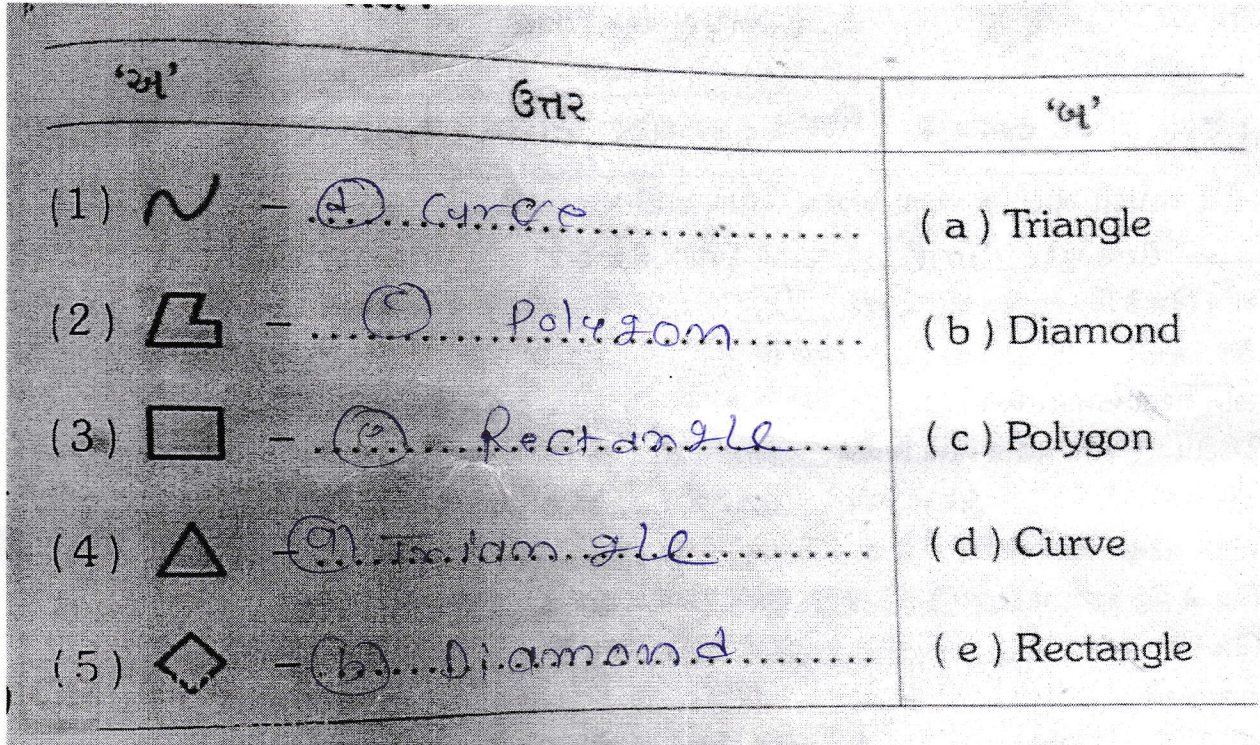 ‘અ’ ઉત્તર ‘બ’
(1) - (d) Curve (a) Triangle
(2) - (c) Polygon (b) Diamond
(3) - (e) Rectangle (c) Polygon
(4) - (a) Triangle (d) Curve
(5) - (b) Diamond (e) Rectangle